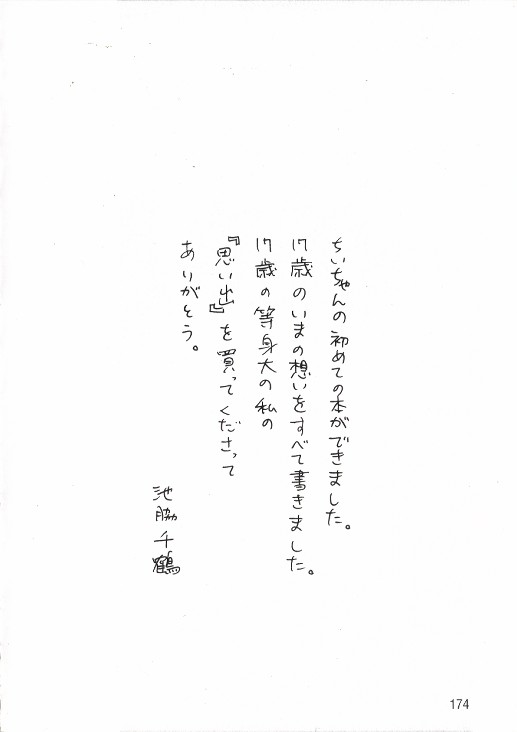 ちいちゃんの初めての本ができました。
17歳のいまの想いをすべて書きました。
17歳の等身大の私の
『思い出』を買ってくださって
ありがとう。
池脇千鶴
174